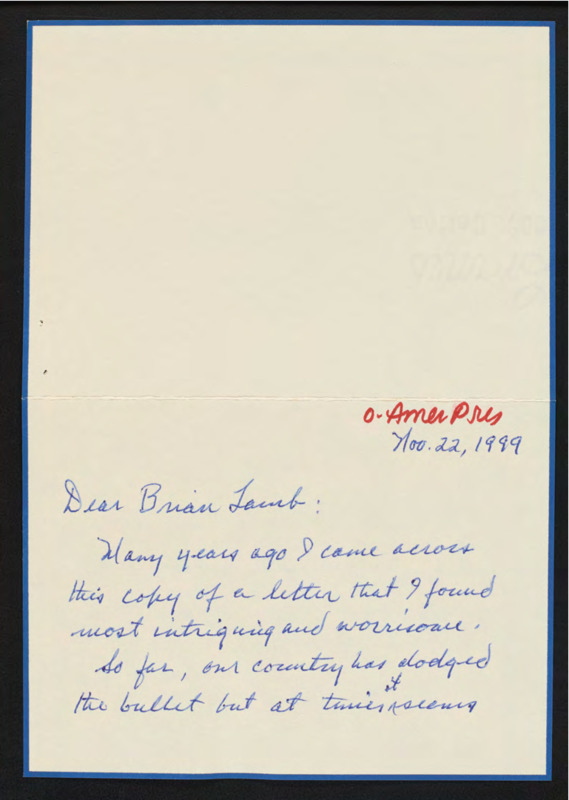 o-Amer Pres
Nov. 22, 1999
Dear Brian Lamb:
Many years ago I came across
this copy of a letter that I found
most intriguing and worrisome.
So far, our country has dodged
the bullet but at times it seems